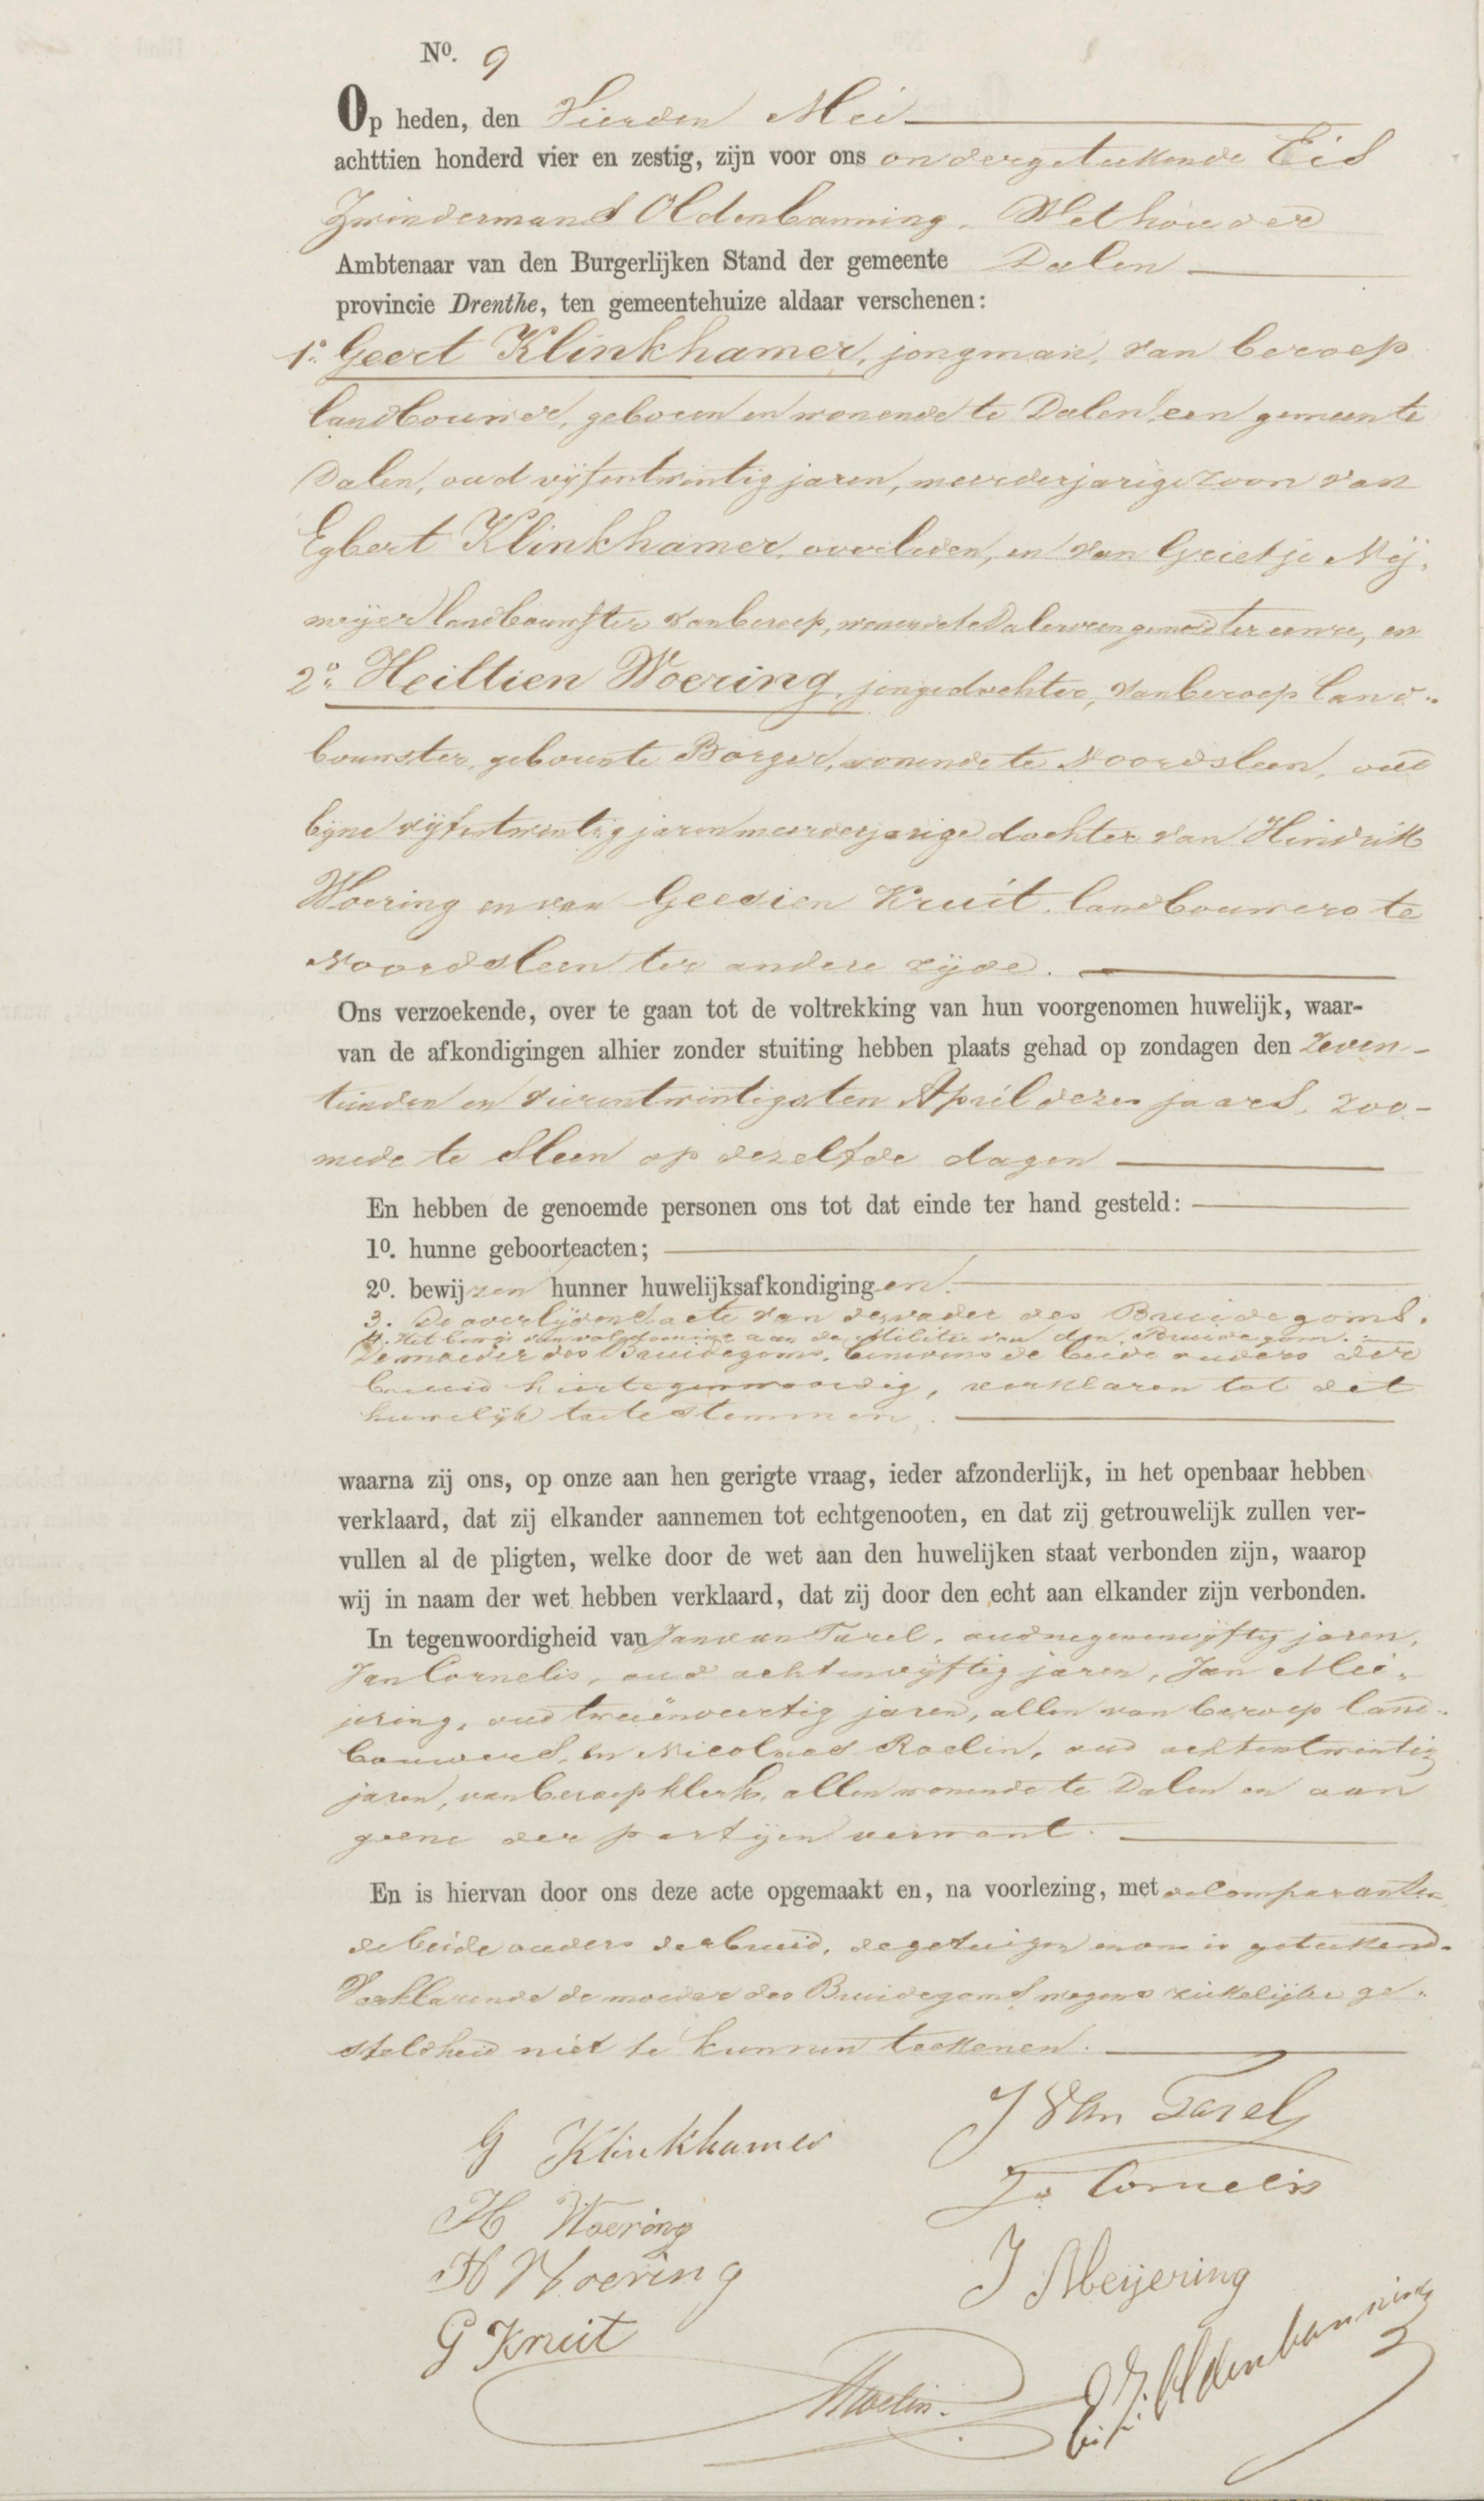 No. 9
Op heden, den Vierden Mei
achttien honderd vier en zestig, zijn voor ons ondergeteekende Eis
Zwindermans Oldenbanning, Wethouder
Ambtenaar van den Burgerlijken Stand der gemeente Dalen
provincie Drenthe, ten gemeentehuize aldaar verschenen:
1o. Geert Klinkhamer, jongman, van beroep
landbouwer, geboren en wonende te Dalerveen gemeente
Dalen, oud vijfentwintig jaren, meerderjarige zoon van
Egbert Klinkhamer, overleden, en van Grietje Nij-
meijer landbouwster van beroep, wonende te Dalerveen gemeld ter eenre, en
2o. Heiltien Woering, jongedochter, van beroep land-
bouwster, geboren te Borger, wonende te Noordsleen, oud
bijna vijfentwintig jaren meerderjarige dochter van Hindrik
Woering en van Geesien Kruit, landbouwers te
Noordsleen ter andere zijde.
Ons verzoekende, over te gaan tot de voltrekking van hun voorgenomen huwelijk, waar-
van de afkondigingen alhier zonder stuiting hebben plaats gehad op zondagen den zeven-
tienden en vierentwintigsten April dezes jaars, zoo-
mede te Sleen op dezelfde dagen
En hebben de genoemde personen ons tot dat einde ter hand gesteld:
1o. hunne geboorteacten;
2o. bewijzen hunner huwelijksafkondigingen.
3. De overlijdensacte van den vader des Bruidegoms.
4. Het bewijs van voldoening aan de Militie van den Bruidegom.
De moeder des Bruidegoms, benevens de beide ouders der
bruid hiertegenwoordig, verklaren tot dit
huwelijk toetestemmen.
waarna zij ons, op onze aan hen gerigte vraag, ieder afzonderlijk, in het openbaar hebben
verklaard, dat zij elkander aannemen tot echtgenooten, en dat zij getrouwelijk zullen ver-
vullen al de pligten, welke door de wet aan den huwelijken staat verbonden zijn, waarop
wij in naam der wet hebben verklaard, dat zij door den echt aan elkander zijn verbonden.
In tegenwoordigheid van Jan van Tarel, oud negenenvijftig jaren,
Jan Cornelis, oud achtenvijftig jaren, Jan Mei-
jering, oud tweeënveertig jaren, allen van beroep land-
bouwers, en Nicolaas Roelin, oud achtentwintig
jaren, van beroep klerk, allen wonende te Dalen en aan
geene der partijen verwant.
En is hiervan door ons deze acte opgemaakt en, na voorlezing, met de Comparanten
de beide ouders der bruid, de getuigen en ons is geteekend.
Verklarende de moeder des Bruidegoms wegens ziekelijke ge-
steldheid niet te kunnen teekenen.
J Van Tarel
G Klinkhamer
Jn Cornelis
H Woering
H Woering
J Meijering
G Kruit
Roelin.
E Z. Oldenbanning